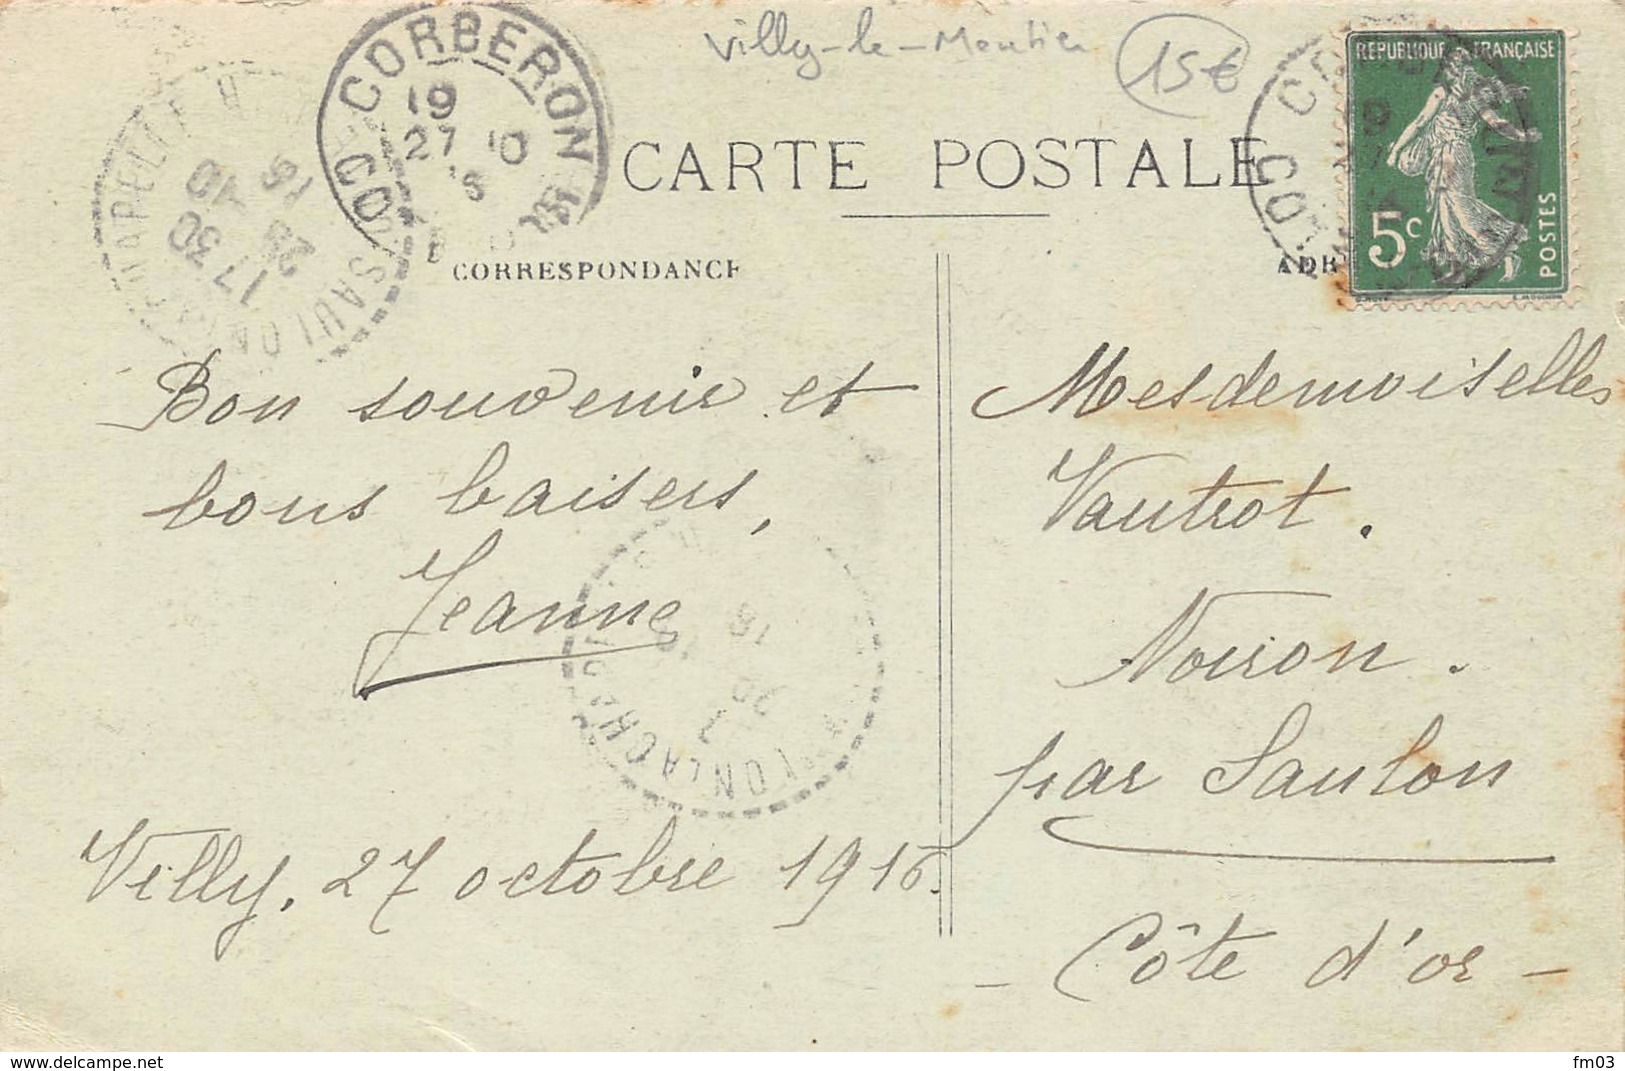 Villy-le-Moutier
15€
CORBERON
19
27 10
CARTE POSTALE
CORRESPONDANCE
RÉPUBLIQUE FRANÇAISE
5c
POSTES
SAULON LA CHAPELLE
17 30
28 10
16
Bon souvenir et
bons baisers,
Jeanne
Villy, 27 octobre 1916.
Mesdemoiselles
Vautrot.
Noiron.
par Saulon
- Côte d'or -
www.delcampe.net
fm03